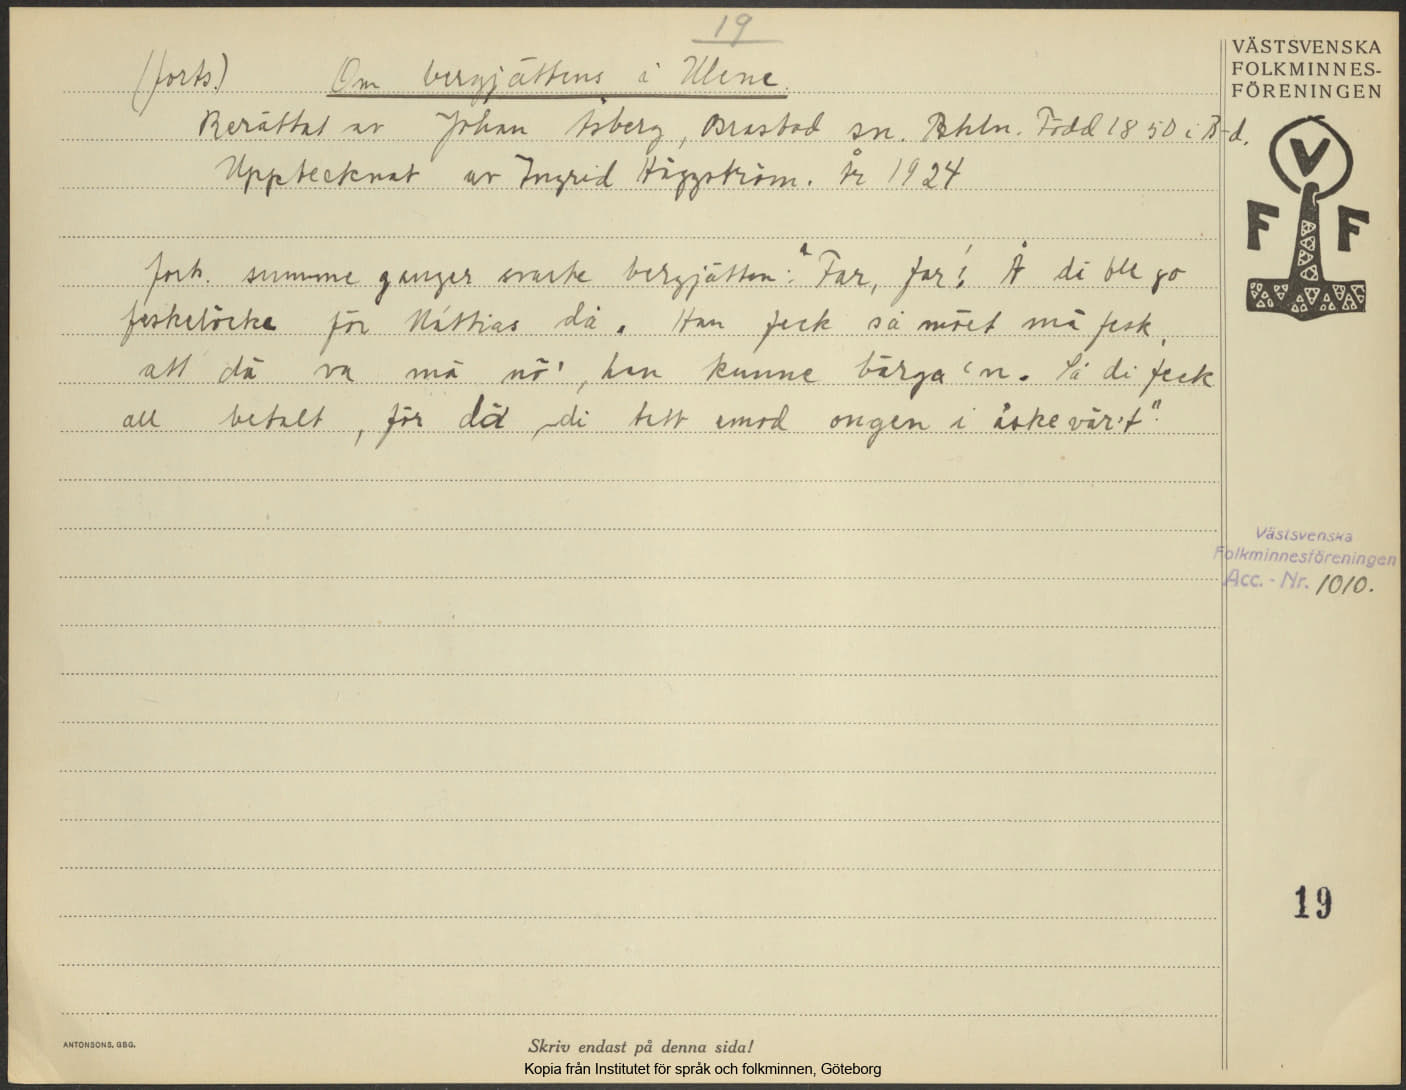 19
(forts.) Om bergjättens å Ulene.
Berättat av Johan Åsberg, Brastad sn. Bhln. Född 1850 i B-d.
Upptecknat av Ingrid Häggström. År 1924
forts. summe ganger svarte bergjätten: "Far, far! Å di ble go
feskelöcke för Mattias då. Han feck så möet mä fesk,
att dä va mä nö', han kunne bärga 'n. Så di feck
all betalt, för dä di tett emod ongen i åskevär't".
VÄSTSVENSKA
FOLKMINNES-
FÖRENINGEN
V
F F
Västsvenska
Folkminnesföreningen
Acc. - Nr. 1010.
19
ANTONSONS, GBG.
Skriv endast på denna sida!
Kopia från Institutet för språk och folkminnen, Göteborg